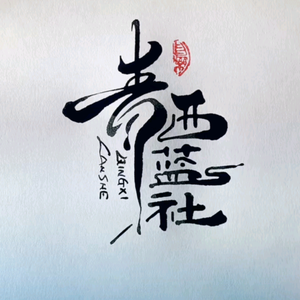 青
西
蓝
社
QINGXI
LANSHE